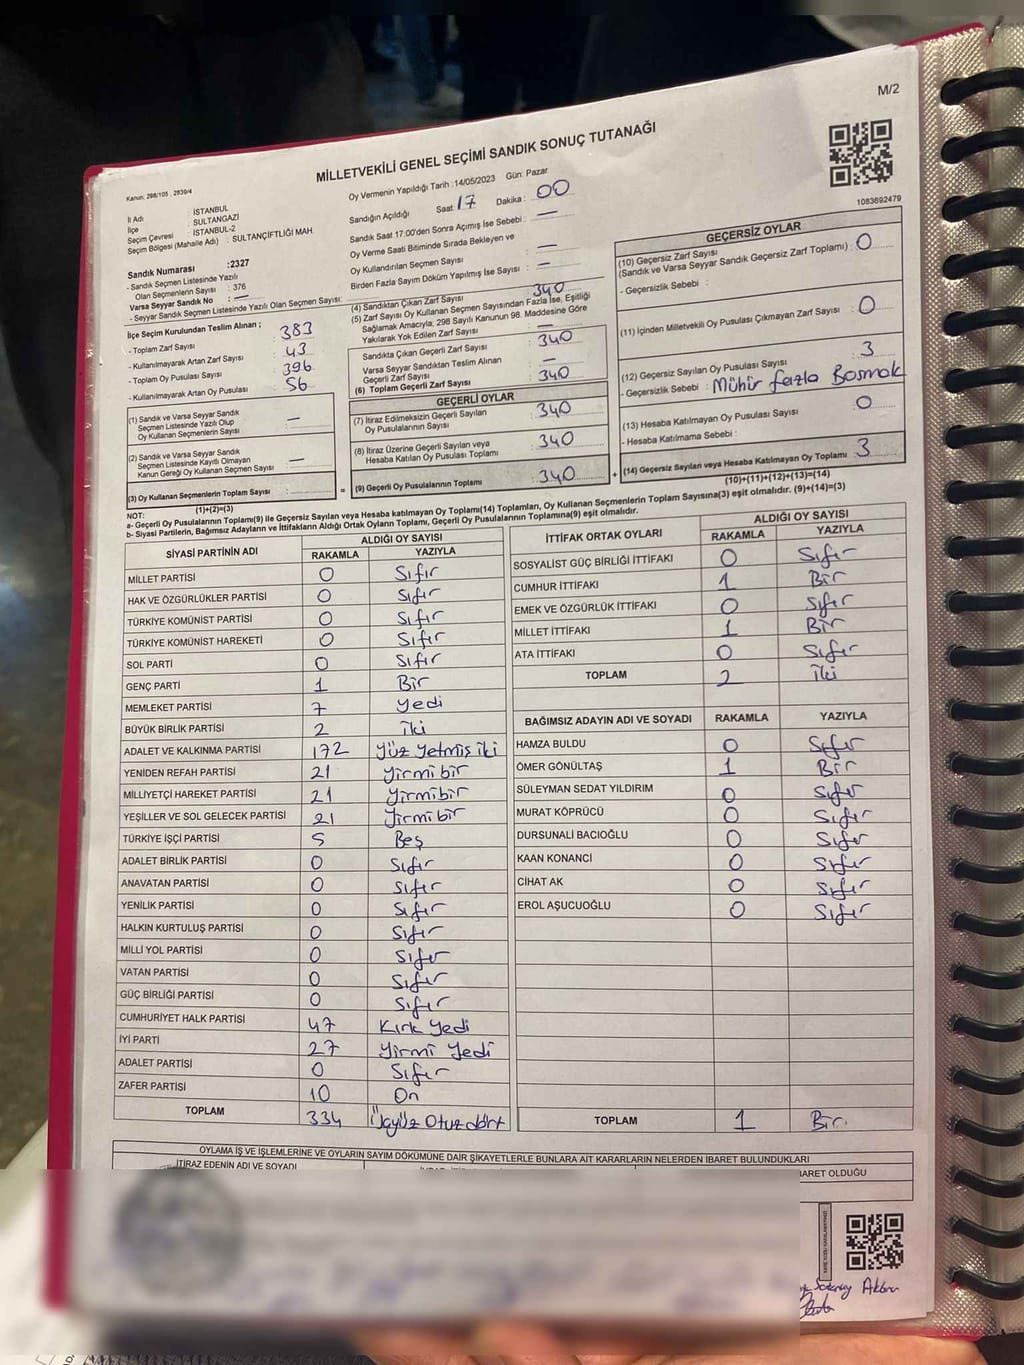 M/2
MİLLETVEKİLİ GENEL SEÇİMİ SANDIK SONUÇ TUTANAĞI
Kanun: 298/105 , 2839/4
1083692479
İl Adı : İSTANBUL
İlçe : SULTANGAZİ
Seçim Çevresi : İSTANBUL-2
Seçim Bölgesi (Mahalle Adı) : SULTANÇİFTLİĞİ MAH
Sandık Numarası :2327
- Sandık Seçmen Listesinde Yazılı
Olan Seçmenlerin Sayısı : 376
Varsa Seyyar Sandık No : —
- Seyyar Sandık Seçmen Listesinde Yazılı Olan Seçmen Sayısı:
İlçe Seçim Kurulundan Teslim Alınan ;
- Toplam Zarf Sayısı : 383
- Kullanılmayarak Artan Zarf Sayısı : 43
- Toplam Oy Pusulası Sayısı : 396
- Kullanılmayarak Artan Oy Pusulası : 56
(1) Sandık ve Varsa Seyyar Sandık
Seçmen Listesinde Yazılı Olup
Oy Kullanan Seçmenlerin Sayısı : —
(2) Sandık ve Varsa Seyyar Sandık
Seçmen Listesinde Kayıtlı Olmayan
Kanun Gereği Oy Kullanan Seçmen Sayısı : —
(3) Oy Kullanan Seçmenlerin Toplam Sayısı :
(1)+(2)=(3)
Oy Vermenin Yapıldığı Tarih : 14/05/2023 Gün: Pazar
Sandığın Açıldığı Saat : 17 Dakika : 00
Sandık Saat 17:00'den Sonra Açılmış İse Sebebi : —
Oy Verme Saati Bitiminde Sırada Bekleyen ve
Oy Kullandırılan Seçmen Sayısı : —
Birden Fazla Sayım Döküm Yapılmış İse Sayısı : —
(4) Sandıktan Çıkan Zarf Sayısı : 340
(5) Zarf Sayısı Oy Kullanan Seçmen Sayısından Fazla İse, Eşitliği
Sağlamak Amacıyla; 298 Sayılı Kanunun 98. Maddesine Göre
Yakılarak Yok Edilen Zarf Sayısı : —
Sandıkta Çıkan Geçerli Zarf Sayısı : 340
Varsa Seyyar Sandıktan Teslim Alınan
Geçerli Zarf Sayısı : —
(6) Toplam Geçerli Zarf Sayısı : 340
GEÇERLİ OYLAR
(7) İtiraz Edilmeksizin Geçerli Sayılan
Oy Pusulalarının Sayısı : 340
(8) İtiraz Üzerine Geçerli Sayılan veya
Hesaba Katılan Oy Pusulası Toplamı : 340
(9) Geçerli Oy Pusulalarının Toplamı : 340
GEÇERSİZ OYLAR
(10) Geçersiz Zarf Sayısı
(Sandık ve Varsa Seyyar Sandık Geçersiz Zarf Toplamı) : 0
- Geçersizlik Sebebi :
(11) İçinden Milletvekili Oy Pusulası Çıkmayan Zarf Sayısı : 0
(12) Geçersiz Sayılan Oy Pusulası Sayısı : 3
- Geçersizlik Sebebi : Mühür fazla Basmak
(13) Hesaba Katılmayan Oy Pusulası Sayısı : 0
- Hesaba Katılmama Sebebi :
(14) Geçersiz Sayılan veya Hesaba Katılmayan Oy Toplamı : 3
(10)+(11)+(12)+(13)=(14)
NOT:
a- Geçerli Oy Pusulalarının Toplamı(9) ile Geçersiz Sayılan veya Hesaba katılmayan Oy Toplamı(14) Toplamları, Oy Kullanan Seçmenlerin Toplam Sayısına(3) eşit olmalıdır. (9)+(14)=(3)
b- Siyasi Partilerin, Bağımsız Adayların ve İttifakların Aldığı Ortak Oyların Toplamı, Geçerli Oy Pusulalarının Toplamına(9) eşit olmalıdır.
SİYASİ PARTİNİN ADI ALDIĞI OY SAYISI
RAKAMLA YAZIYLA
MİLLET PARTİSİ 0 Sıfır
HAK VE ÖZGÜRLÜKLER PARTİSİ 0 Sıfır
TÜRKİYE KOMÜNİST PARTİSİ 0 Sıfır
TÜRKİYE KOMÜNİST HAREKETİ 0 Sıfır
SOL PARTİ 0 Sıfır
GENÇ PARTİ 1 Bir
MEMLEKET PARTİSİ 7 Yedi
BÜYÜK BİRLİK PARTİSİ 2 İki
ADALET VE KALKINMA PARTİSİ 172 Yüz Yetmiş iki
YENİDEN REFAH PARTİSİ 21 Yirmi bir
MİLLİYETÇİ HAREKET PARTİSİ 21 Yirmibir
YEŞİLLER VE SOL GELECEK PARTİSİ 21 Yirmibir
TÜRKİYE İŞÇİ PARTİSİ 5 Beş
ADALET BİRLİK PARTİSİ 0 Sıfır
ANAVATAN PARTİSİ 0 Sıfır
YENİLİK PARTİSİ 0 Sıfır
HALKIN KURTULUŞ PARTİSİ 0 Sıfır
MİLLİ YOL PARTİSİ 0 Sıfır
VATAN PARTİSİ 0 Sıfır
GÜÇ BİRLİĞİ PARTİSİ 0 Sıfır
CUMHURİYET HALK PARTİSİ 47 Kırk Yedi
İYİ PARTİ 27 Yirmi Yedi
ADALET PARTİSİ 0 Sıfır
ZAFER PARTİSİ 10 On
TOPLAM 334 Üçyüz Otuz dört
İTTİFAK ORTAK OYLARI ALDIĞI OY SAYISI
RAKAMLA YAZIYLA
SOSYALİST GÜÇ BİRLİĞİ İTTİFAKI 0 Sıfır
CUMHUR İTTİFAKI 1 Bir
EMEK VE ÖZGÜRLÜK İTTİFAKI 0 Sıfır
MİLLET İTTİFAKI 1 Bir
ATA İTTİFAKI 0 Sıfır
TOPLAM 2 İki
BAĞIMSIZ ADAYIN ADI VE SOYADI RAKAMLA YAZIYLA
HAMZA BULDU 0 Sıfır
ÖMER GÖNÜLTAŞ 1 Bir
SÜLEYMAN SEDAT YILDIRIM 0 Sıfır
MURAT KÖPRÜCÜ 0 Sıfır
DURSUNALİ BACIOĞLU 0 Sıfır
KAAN KONANCİ 0 Sıfır
CİHAT AK 0 Sıfır
EROL AŞUCUOĞLU 0 Sıfır
TOPLAM 1 Bir.
OYLAMA İŞ VE İŞLEMLERİNE VE OYLARIN SAYIM DÖKÜMÜNE DAİR ŞİKAYETLERLE BUNLARA AİT KARARLARIN NELERDEN İBARET BULUNDUKLARI
İTİRAZ EDENİN ADI VE SOYADI
İBARET OLDUĞU